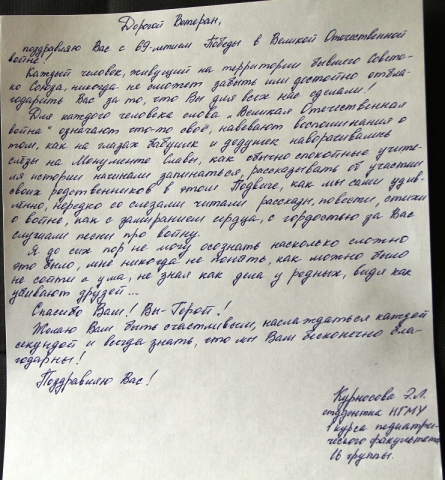 Дорогой Ветеран,
поздравляю Вас с 69-летием Победы в Великой Отечественной
войне!
Каждый человек, живущий на территории бывшего Советс-
ко Союза, никогда не сможет забыть или достойно отбла-
годарить Вас за то, что Вы для всех нас сделали!
Для каждого человека слова „Великая Отечественная
война" означают что-то своё, навевают воспоминания о
том, как на глазах бабушек и дедушек наворачивались
слёзы на Монументе Славы, как обычно спокойные учите-
ля истории начинали запинаться, рассказывать об участии
своих родственников в этом Подвиге, как мы сами
нередко со слезами читали рассказы, повести, стихи
о войне, как с замиранием сердца, с гордостью за Вас
слушали песни про войну.
Я до сих пор не могу осознать насколько сложно
это было, мне никогда не понять, как можно было
не сойти с ума, не зная как дела у родных, видя как
убивают друзей...
Спасибо Вам! Вы-Герои!
Желаю Вам быть счастливым, наслаждаться каждой
секундой и всегда знать, что мы Вам бесконечно бла-
годарны!
Поздравляю Вас!
Курносова Э.Л.
студентка НГМУ
1 курса педиатри-
ческого факультета
16 группы.